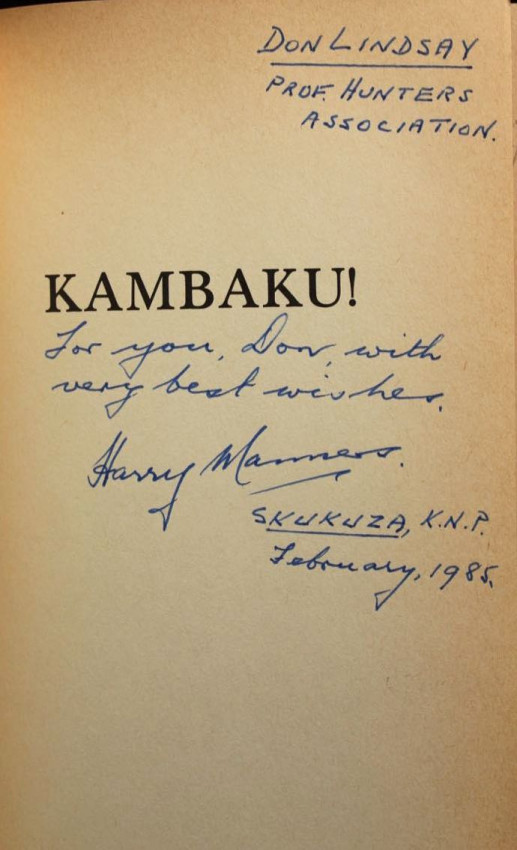 DON LINDSAY
PROF. HUNTERS
ASSOCIATION.
KAMBAKU!
For you, Don, with
very best wishes.
Harry Manners.
SKUKUZA, K.N.P.
February, 1985.